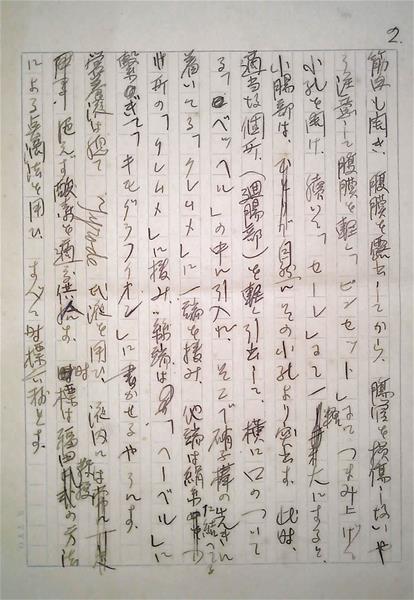 2.
筋肉も開き、腹膜を露出してから、腸管を損傷しないや
う注意して腹膜を軽く「ピンセット」にてつまみ上げて
小孔を開け、続いて「セーレ」にて 大にすると、
小腸部は、 自然にその小孔より突出す。此時、
適当な個所、(廻腸部)を軽く引出して、横に口のついて
る「ベッヘル」の中に引入れ、そこで硝子棒の先きに
着いてる「クレムメ」に一端を挟み、他端は絹糸
此所の「クレムメ」に挟み、絲端は「ヘーベル」に
繋ぎて「キモグラフィオン」に書かせるやうにす。
営養液は温 Tyrode 氏液を用ひ、液内には常に一定
用事、絶えず酸素を通 供へます。時標は福田教授 の方法
による 法を用ひ、すべて時標 秒とす。